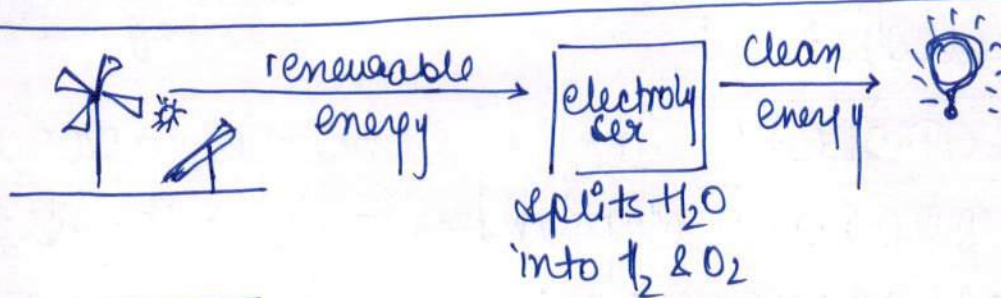 renewable
energy
electroly
ser
clean
energy
splits H₂O
into H₂ & O₂